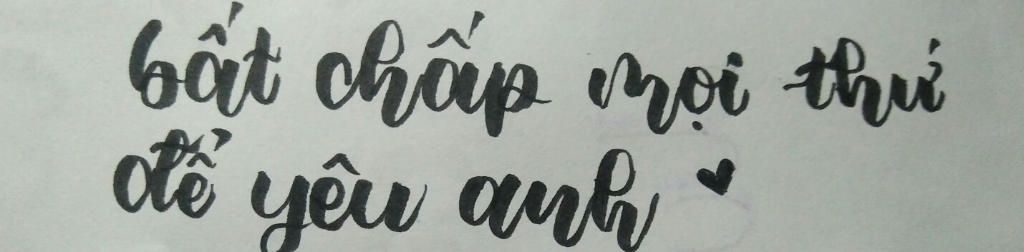 bất chấp mọi thứ
để yêu anh